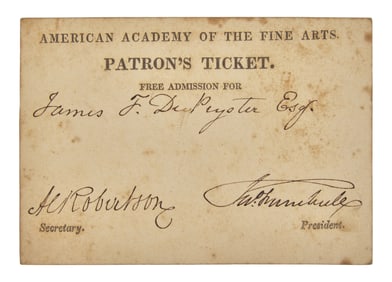 AMERICAN ACADEMY OF THE FINE ARTS.
PATRON'S TICKET.
FREE ADMISSION FOR
James F. DePeyster Esq.
A Robertson
Secretary.
Jno. Trumbull
President.